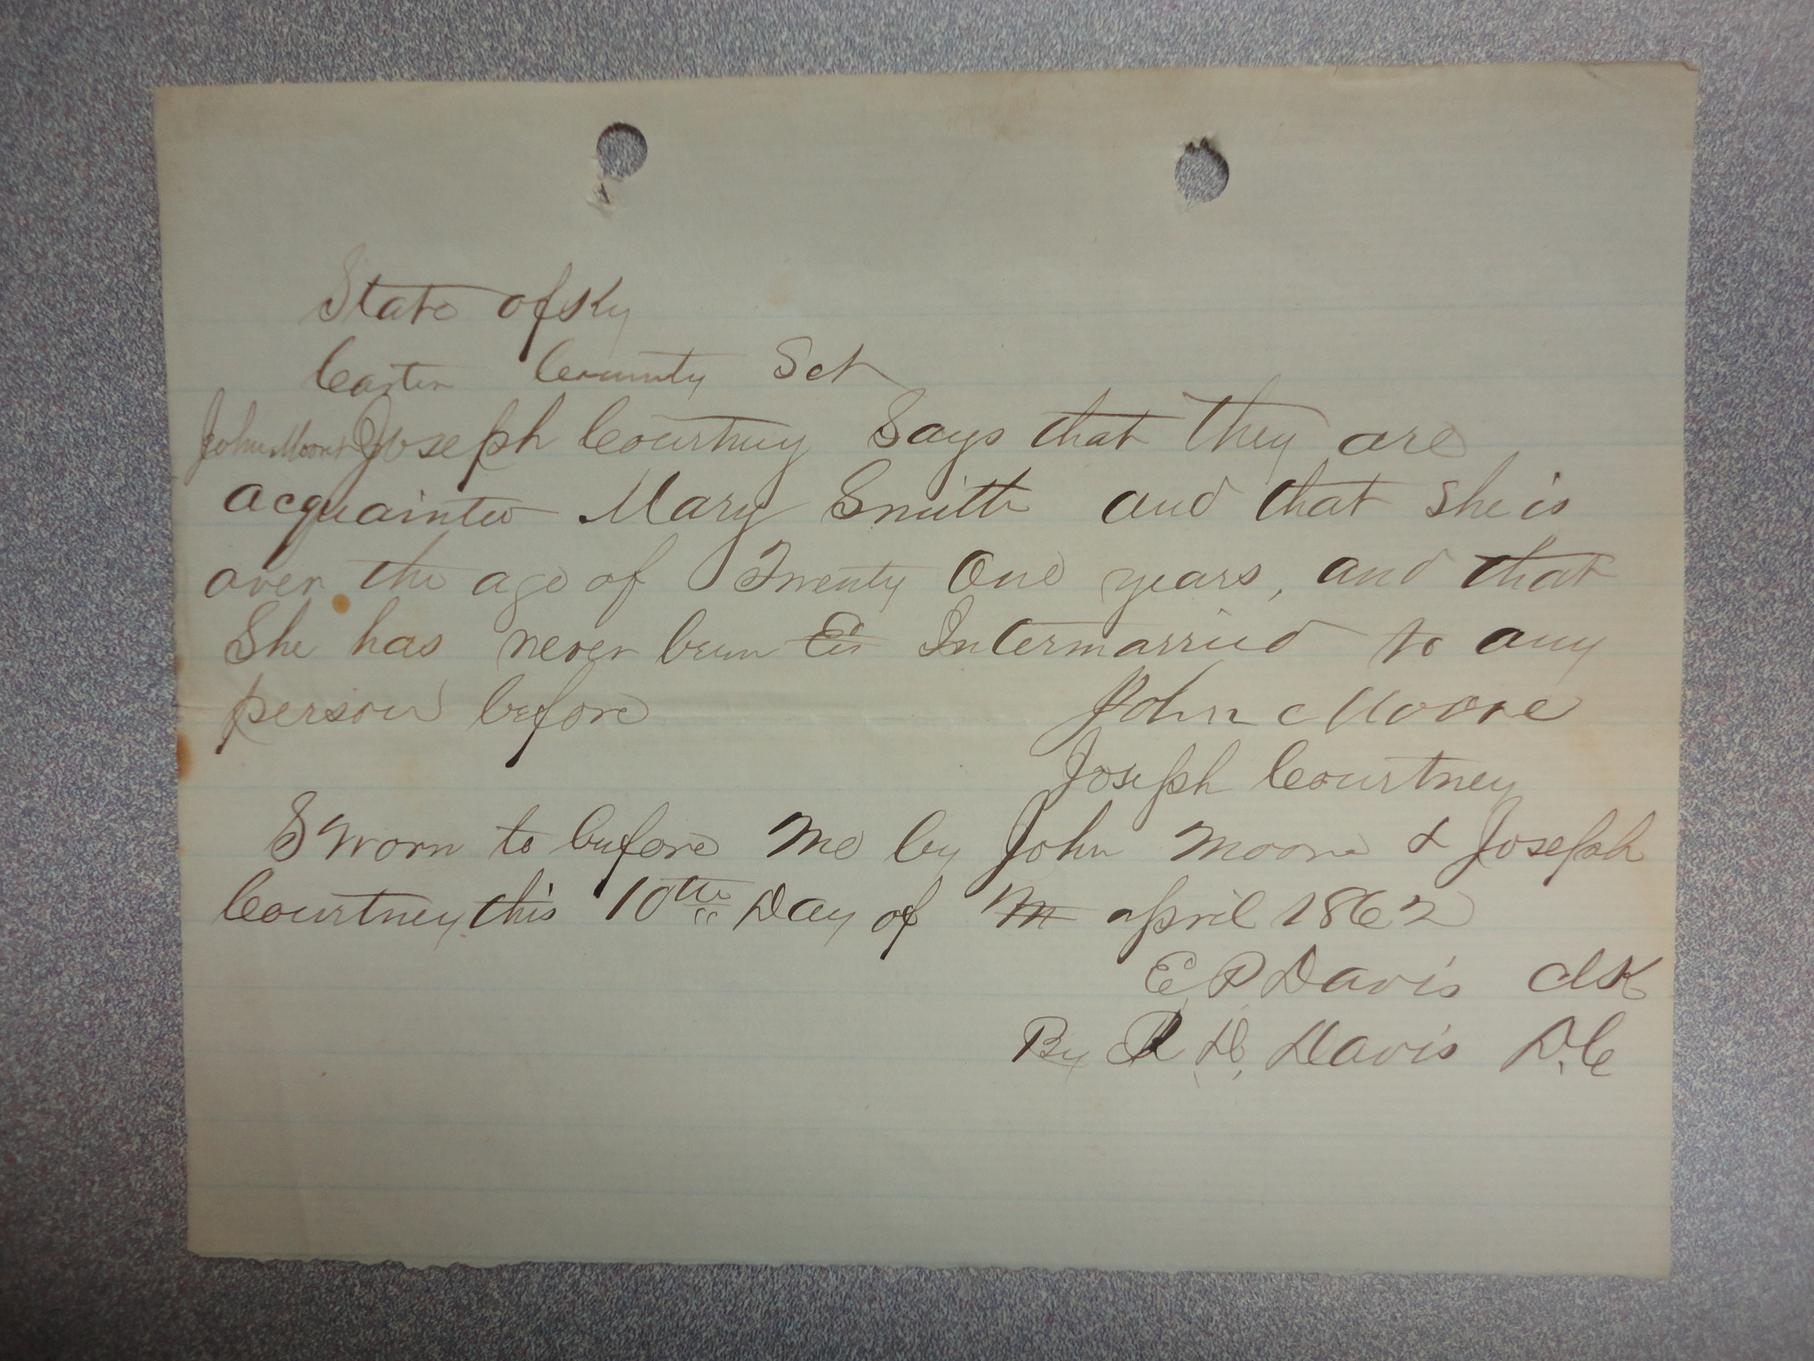 State of Ky
Carter County Sct
John Moore & Joseph Courtney Says that they are
acquainted Mary Smith and that she is
over the age of Twenty One years, and that
She has never been Intermarried to any
person before John Moore
Joseph Courtney
Sworn to before me by John Moore & Joseph
Courtney this 10th Day of M april 1862
E P Davis Clk
By R D. Davis D.C